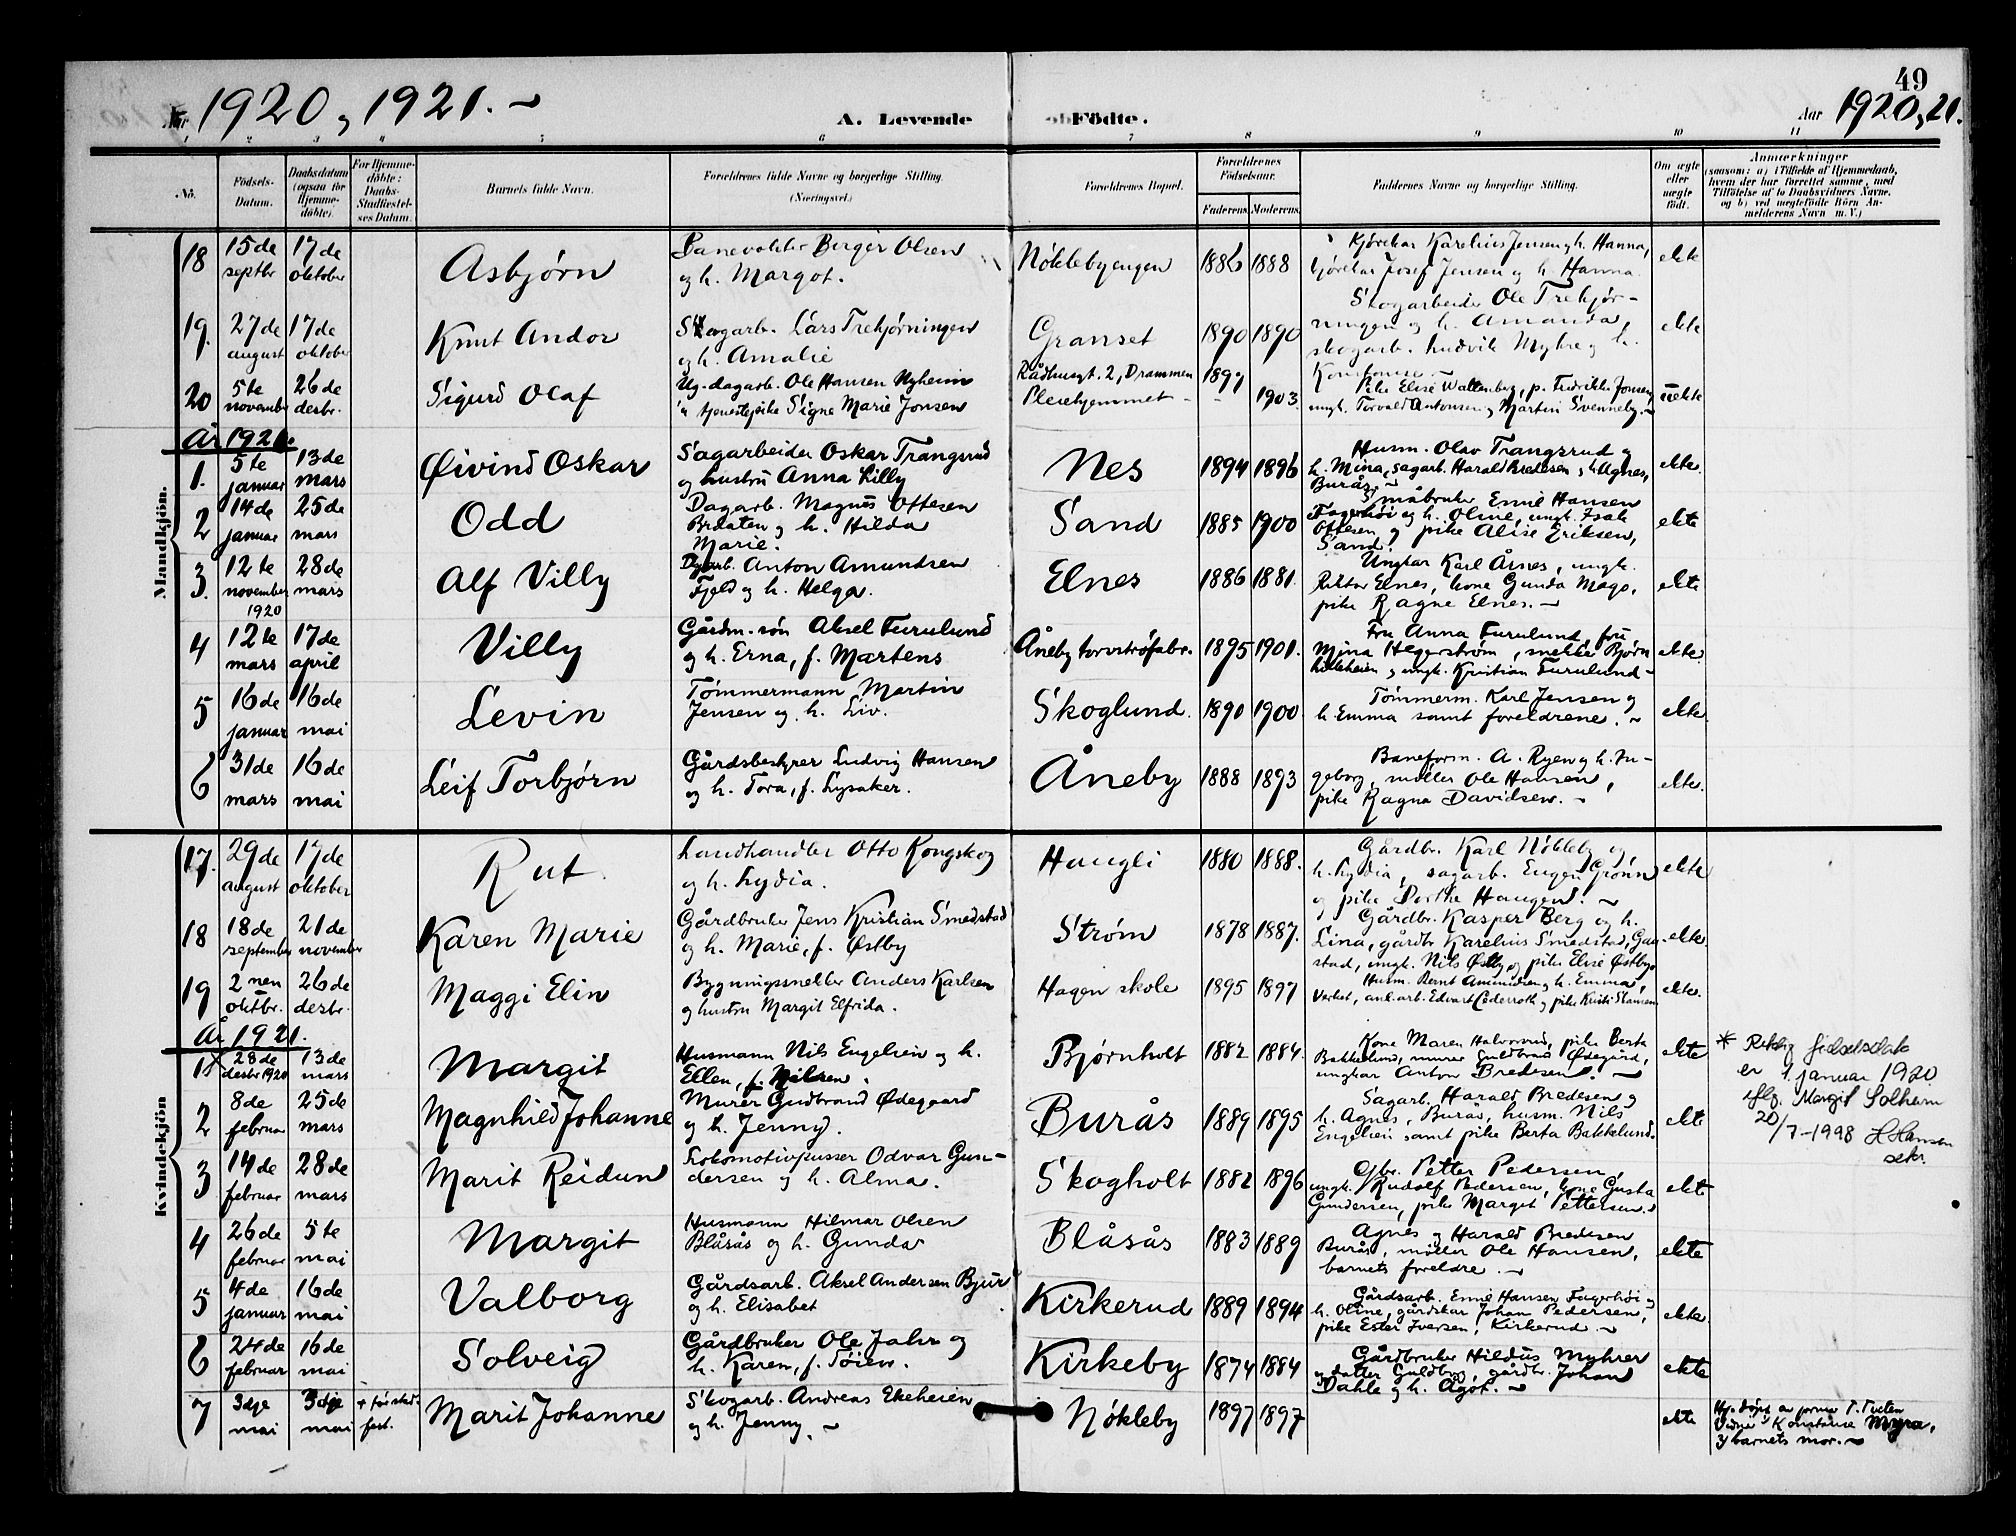 49
Aar 1920, 1921. -
A. Levende Födte.
Aar 1920, 21.
1 2 3 4 5 6 7 8 9 10 11
No.
Födsels-Datum.
Daabsdatum (ogsaa for Hjemmedöbte).
For Hjemmedöbte: Daabs-Stadfæstelses Datum.
Barnets fulde Navn.
Forældrenes fulde Navne og borgerlige Stilling. (Næringsvei.)
Forældrenes Bopæl.
Forældrenes Födselsaar.
Faderens. Moderens.
Faddernes Navne og borgerlige Stilling.
Om ægte eller uægte födt.
Anmærkninger
(saasom: a) i Tilfælde af Hjemmedaab, hvem der har forrettet samme, med Tilföielse af to Daabsvidners Navne, og b) ved uægtefödte Börn Anmelderens Navn m. V.)
Mandkjön.
18 15de septbr 17de oktober Asbjørn Banevokter Birger Olsen og h. Margot. Nøklebyengen 1886 1888 Kjørekar Karelius Jensen og h. Hanna, kjørekar Josef Jensen og h. Hanna. ekte
19. 27de august 17de oktober Knut Andor Skogarb. Lars Trehjørningen og h. Amalie Granset 1890 1890 Skogarbeider Ole Trehjørningen og h. Amanda, skogarb. Ludvik Myhre og h. ekte
20 5te november 26de desbr. Sigurd Olaf Ug. dagarb. Ole Hansen Nyheim og tjenestepike Signe Marie Jonsen Rådhusgt. 2, Drammen Pleiehjemmet - 1897 1903. Pike Elise Wattenberg, p. Fredrikke Jonsen, ungk. Torvald Antonsen og Martin Svenneby. - uekte
År 1921.
1. 5te januar 13de mars Øivind Oskar Sagarbeider Oskar Trangsrud og hustru Anna Lilly Nes 1894 1896 Husm. Olav Trangsrud og h. Mina, sagarb. Harald Bredesen og h. Agnes, Burås. - ekte.
2 14de januar 25de mars Odd Dagarb. Magnus Ottesen Braaten og h. Hilda Marie. Sand 1885 1900 Småbruker Enné Hansen Fagerhøi og h. Oline, ungk. Isak Ottesen og pike Alise Eriksen, Sand. ekte
3. 12te november 1920 28de mars Alf Villy Dagarb. Anton Amundsen Fjeld og h. Helga. Elnes 1886 1881. Ungkar Karl Årnes, ungk. Elnes, kone Gunda Mago, pike Ragne Elnes. - ekte
4 12te mars 17de april Villy Gårdm.søn Aksel Furulund og h. Erna, f. Martens Åneby torvstrøfabr. 1895 1901. Fru Anna Furulund, fru Mina Hegerstrøm, snekker Bjørn og ungk. Kristian Furulund - ekte.
5 16de januar 16de mai Levin Tømmermann Martin Jensen og h. Liv. Skoglund. 1890 1900. Tømmerm. Karl Jensen og h. Emma samt foreldrene. - ekte.
6 31de mars 16de mai Leif Torbjørn Gårdsbestyrer Ludvig Hansen og h. Tora, f. Lysaker. Åneby 1888 1893 Baneform. A. Ryen og h. Ingeborg, møller Ole Hansen, pike Ragna Davidsen. - ekte.
Kvindekjön
17. 29de august 17de oktober Rut. Landhandler Otto Kongskog og h. Lydia. Haugli 1880 1888. Gårdbr. Karl Nökleby og h. Lydia, sagarb. Eugen Grønn og pike Dorthe Haugen. - ekte
18 18de september 21de november Karen Marie Gårdbruker Jens Kristian Smedstad og h. Marie, f. Østby Strøm 1878 1887. Gårdbr. Kasper Berg og h. Lina, gårdbr Karelius Smedstad, Gaustad, ungk. Nils Østby og pike Elise Østby. ekte.
19 2nen oktbr. 26de desbr. Maggi Elin Bygningssnekker Anders Karlsen og hustru Margit Elfrida. Hagen skole 1895 1897 Husm. Bernt Amundsen og h. Emma, Verket, anl.arb. Edvart Cederroth og pike ekte.
År 1921.
1* 28de desbr 1920 13de mars Margit Husmann Nils Engelien og h. Ellen, f. Nilsen. Bjørnholt 1882 1884. Kone Maren Halvorsrud, pike Berta Bakkelund, murer Guldbrand Ødegård, ungkar Anton Bredesen. - ekte * Riktig fødselsdato er 1. januar 1920 iflg. Margit Solheim 20/7-1998 H Hansen sekr.
2 8de februar 25de mars Magnhild Johanne Murer Gudbrand Ødegaard og h. Jenny. Burås 1889 1895 Sagarb. Harald Bredesen og h. Agnes, Burås, husm. Nils Engelien samt pike Berta Bakkelund. ekte
3 14de februar 28de mars Marit Reidun Lokomotivpusser Odvar Gundersen og h. Alma. Skogholt 1882 1896 Gbr. Petter Pedersen, ungk. Rudolf Pedersen, kone Gusta Gundersen, pike Margit Pettersen. - ekte
4 26de februar 5te mai Margit Husmann Hilmar Olsen Blåsås og h. Gunda Blåsås 1883 1889 Agnes og Harald Bredesen Burås, møller Ole Hansen, barnets foreldre. - ekte
5 4de januar 16de mai Valborg Gårdsarb. Aksel Andersen Bjur og h. Elisabet Kirkerud 1889 1894 Gårdsarb. Enné Hansen Fagerhøi og h. Oline, gårdskar Johan Pedersen, pike Ester Iversen, Kirkerud. - ekte.
6 24de februar 16de mai Solveig Gårdbruker Ole Jahr og h. Karen, f. Tøien. Kirkeby 1874 1884 Gårdbruker Hildus Myhrer og datter Guldborg, gårdbr. Johan Dahle og h. Ågot. - ekte
7 3dje mai 3dje mai + før stadfest. Marit Johanne Skogarb. Andreas Ekeheien og h. Jenny. - Nøkleby 1897 1897 ekte Hj. døpt av jormo T. Tveten Vidne: Konstanse Myra, og barnets mor. -